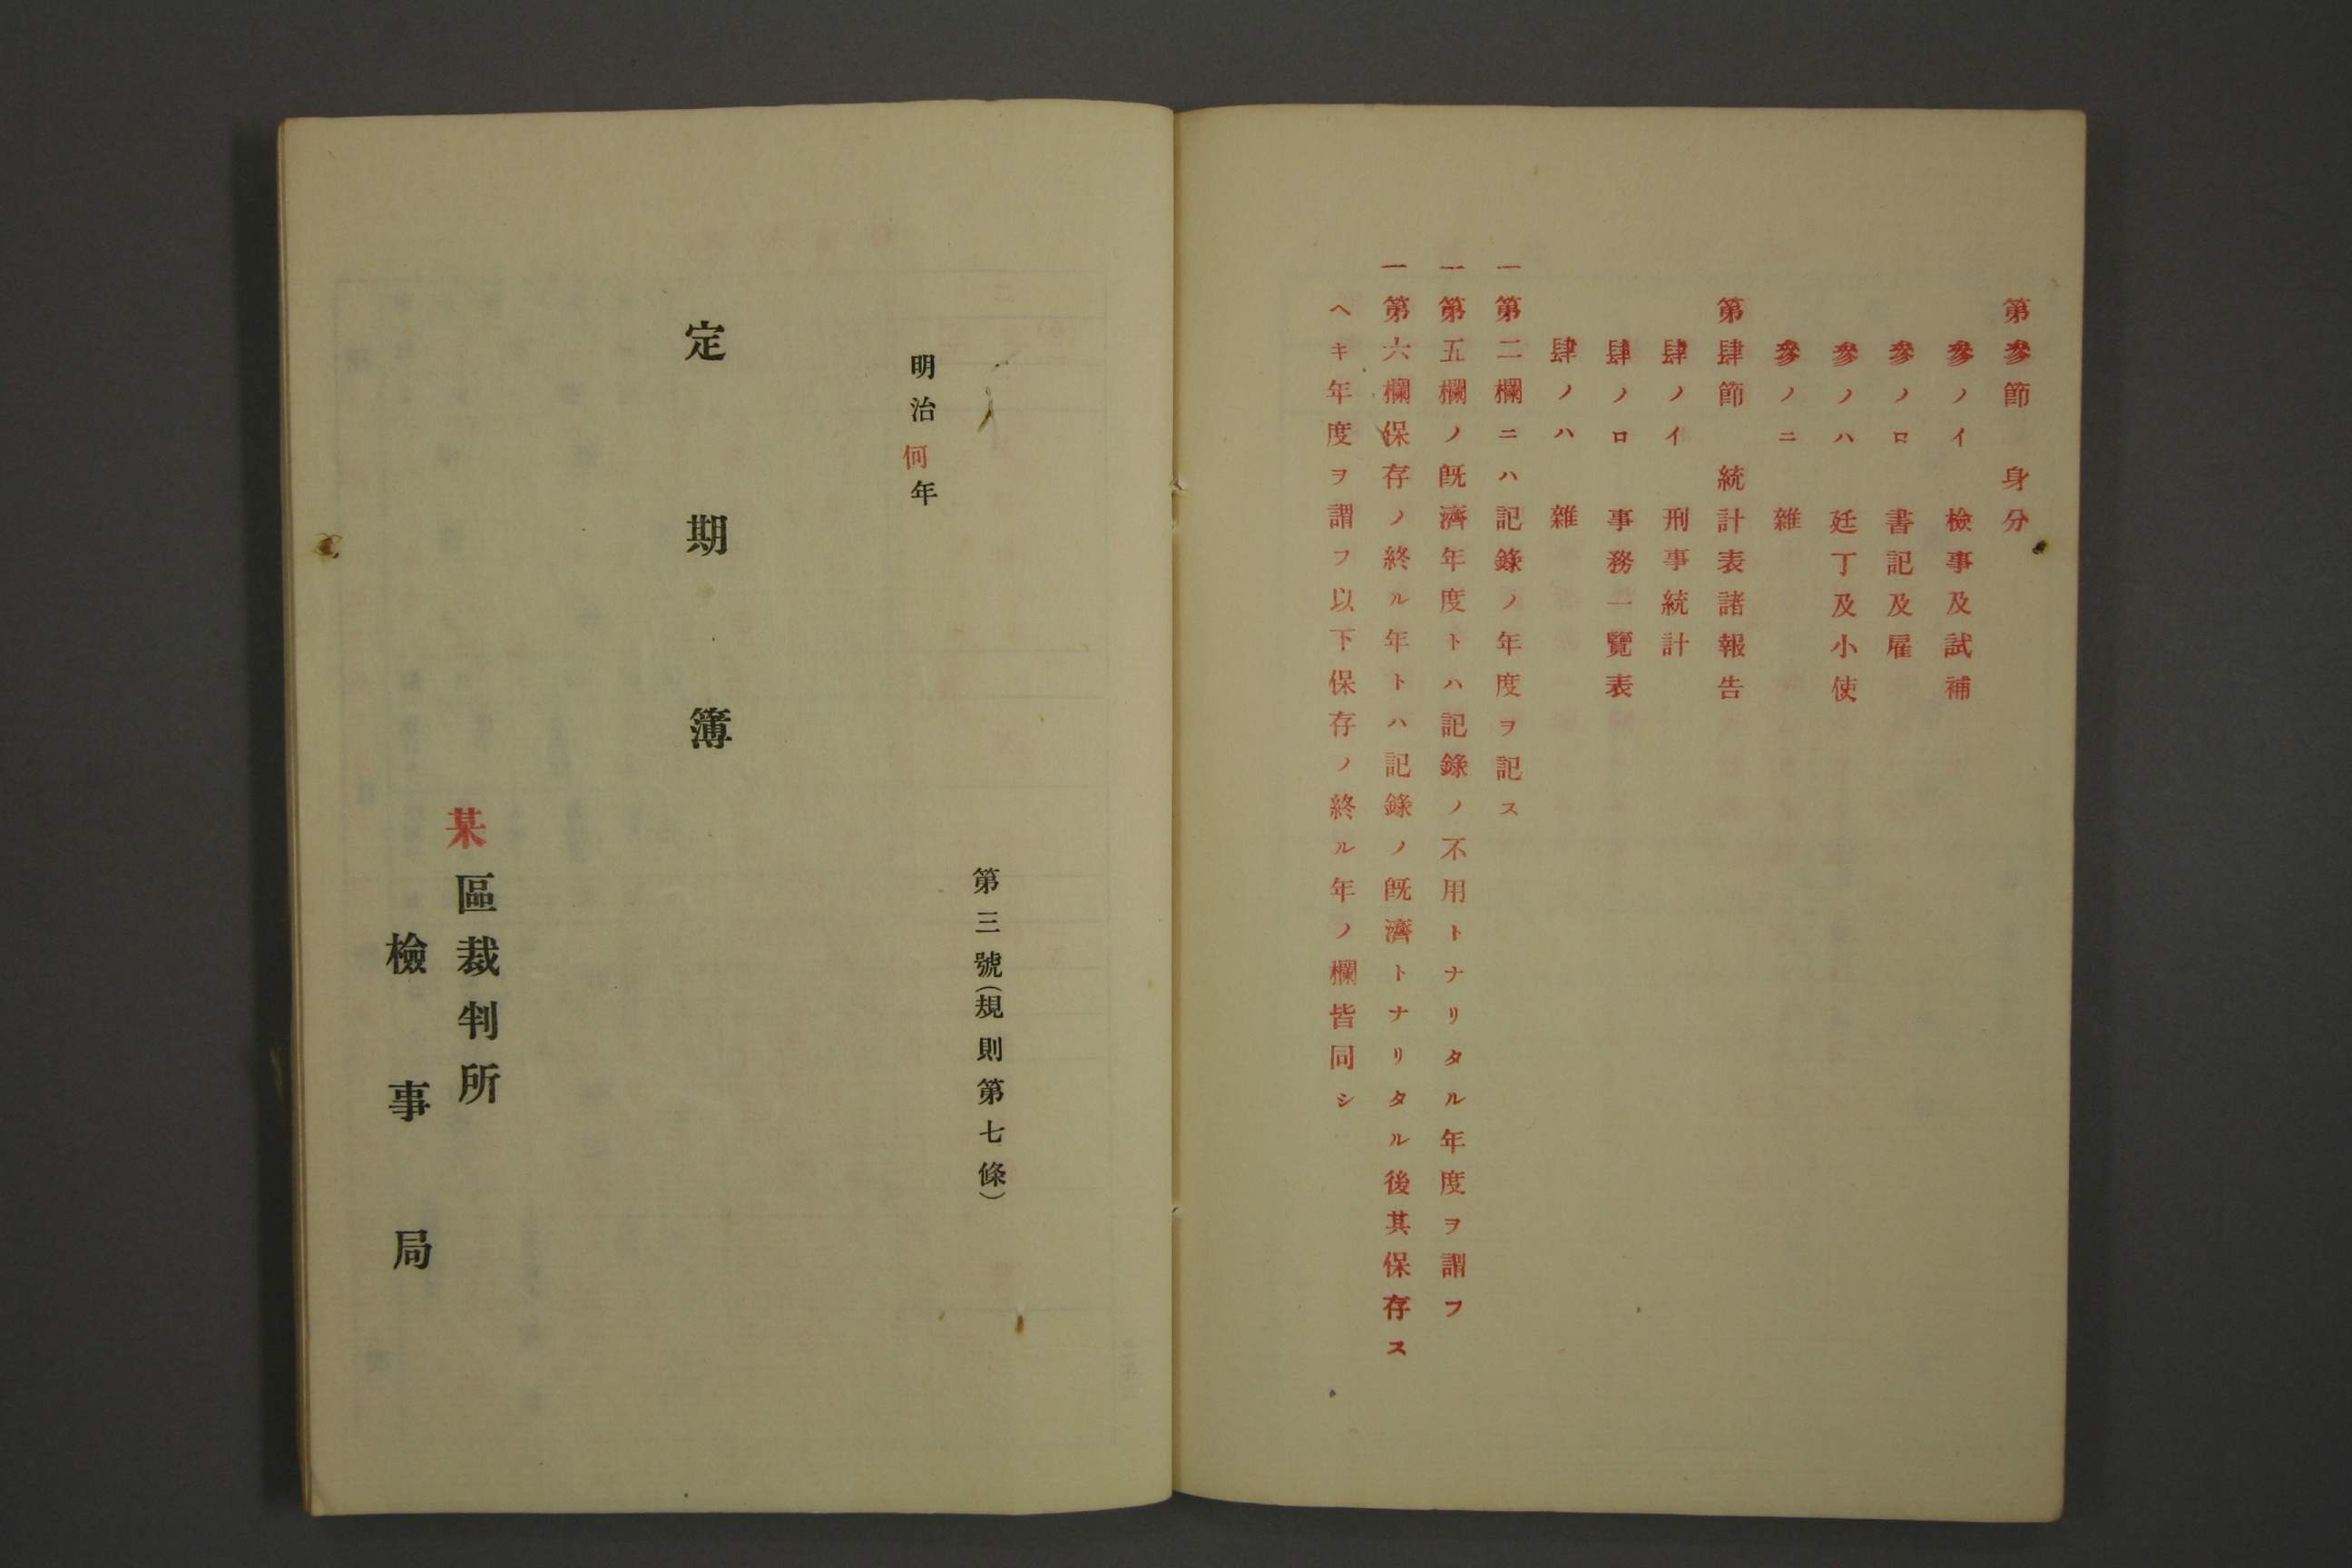 第參節　身分
參ノイ　檢事及試補
參ノロ　書記及雇
參ノハ　廷丁及小使
參ノニ　雜
第肆節　統計表諸報告
肆ノイ　刑事統計
肆ノロ　事務一覽表
肆ノハ　雜
一第二欄ニハ記錄ノ年度ヲ記ス
一第五欄ノ既濟年度トハ記錄ノ不用トナリタル年度ヲ謂フ
一第六欄保存ノ終ル年トハ記錄ノ既濟トナリタル後其保存ス
ヘキ年度ヲ謂フ以下保存ノ終ル年ノ欄皆同シ
第三號（規則第七條）
明治何年
定期簿
某區裁判所
檢事局